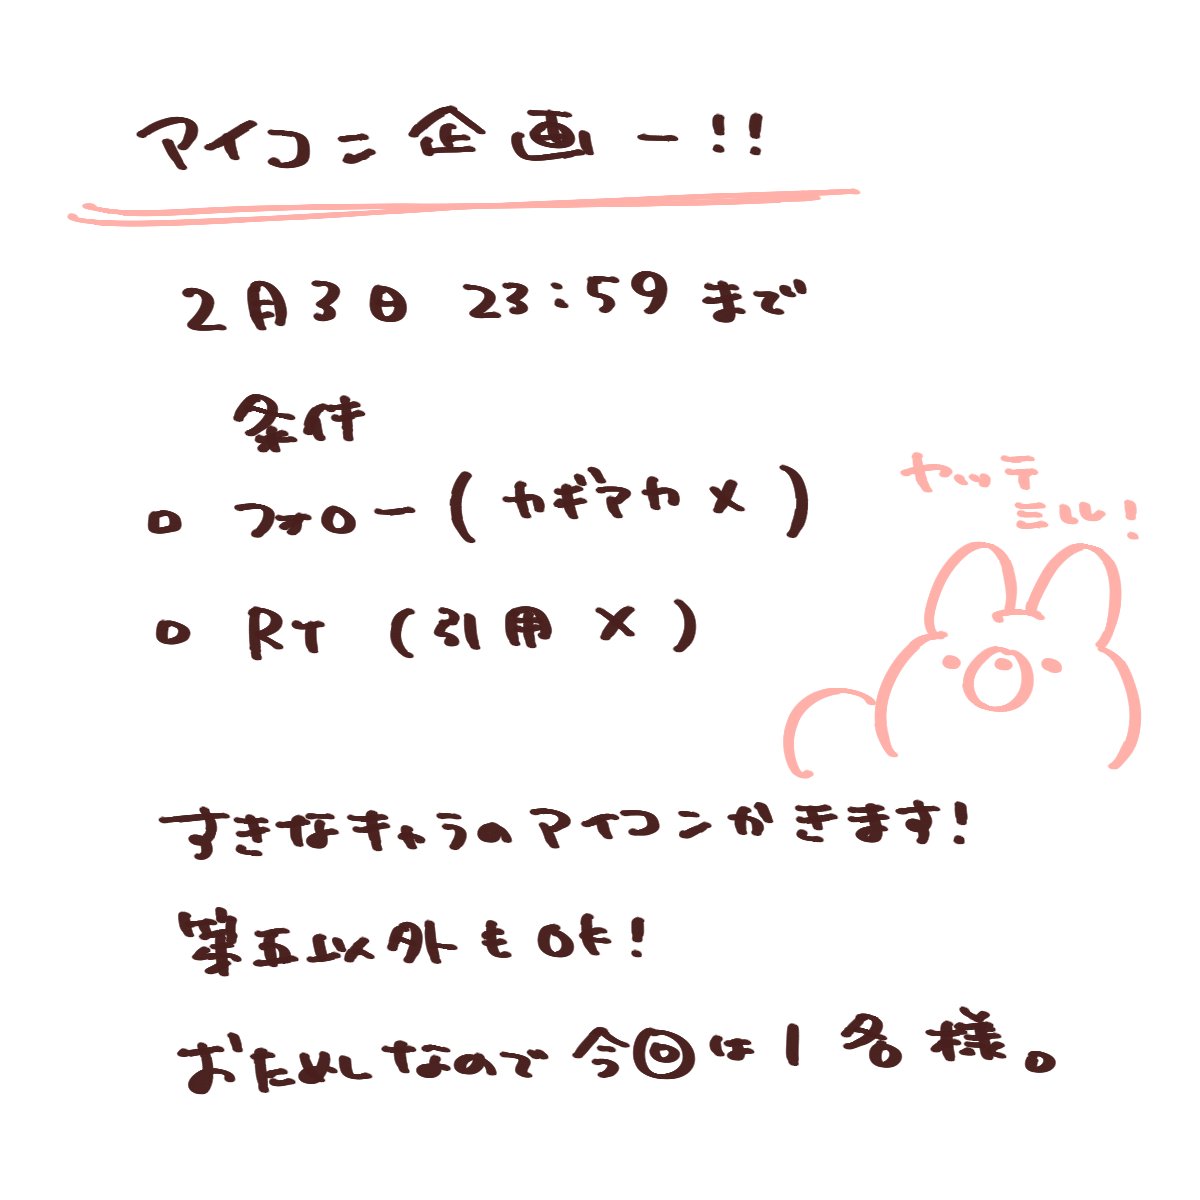 アイコン企画ー!!
2月3日 23:59まで
条件
○ フォロー(カギアカ×)
○ RT (引用×)
ヤッテ
ミル!
すきなキャラのアイコンかきます!
第五以外もOK!
おためしなので今回は1名様。